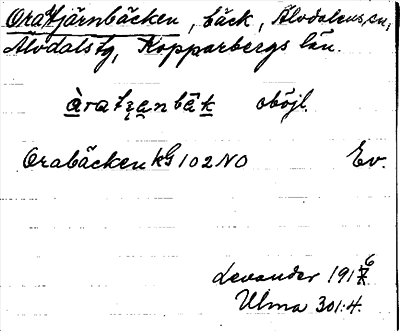 Oratjärnbäcken, bäck, Älvdalens sn,
Älvdals tg, Kopparbergs län.
àratʒ̨anbäk oböjl.
Orabäcken kG 102 NO Ev.
Levander 1916
Ulma 301:4.